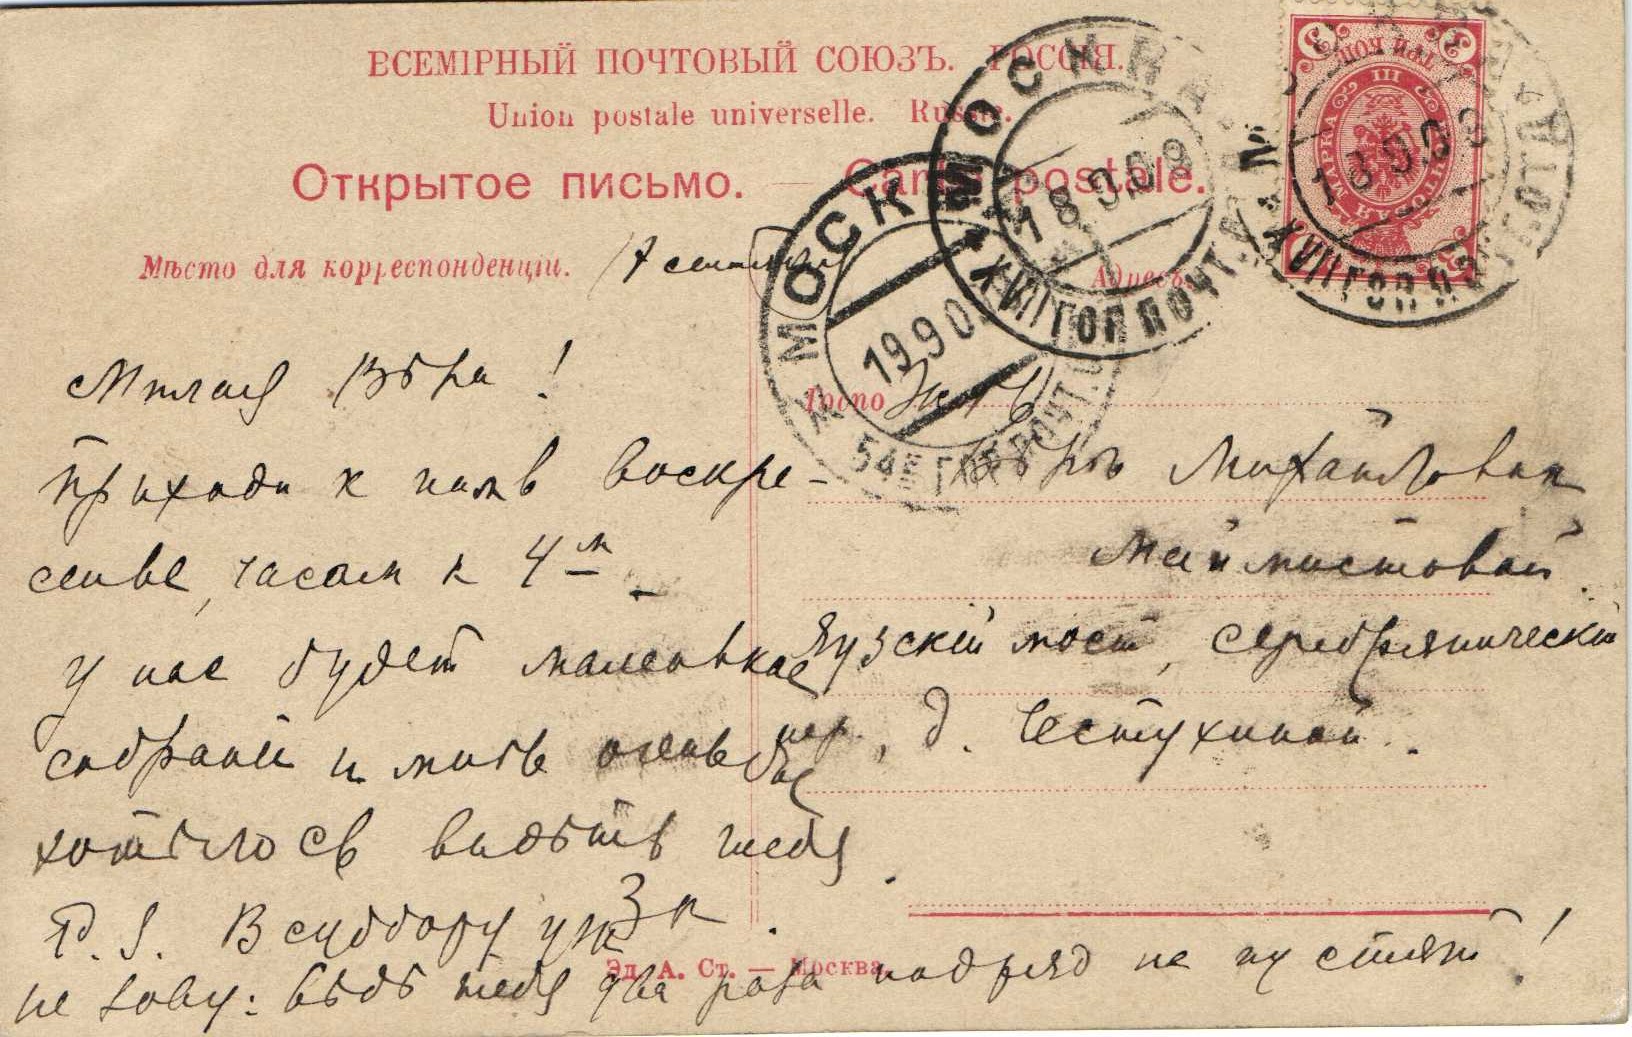 ВСЕМІРНЫЙ ПОЧТОВЫЙ СОЮЗЪ. РОССІЯ.
Union postale universelle. Russie.
Открытое письмо. — Carte postale.
Мѣсто для корреспонденціи.
Адресъ.
17 сентября
Милая Вѣра!
Приходи к намъ воскре-
сенье, часам к 4 м
у нас будет маленькое
собраніе и мнѣ очень бы
хотѣлось видѣть тебя.
P. S. В субботу уж
не зову: вѣдь тебя два раза подряд не пустят!
Госпо жѣ
Вѣрѣ Михайловнѣ
Маймистовой.
Яузскій мост, Серебряническій
пер., д. Шестухиной.
Эд. А. Ст. — Москва
МОСКВА
18 9 09
XVII ГОР. ПОЧТ.
МОСКВА
19 9 0
54 ГОР. ПОЧТ.
18 9 09
XVII ГОР. ПОЧТ.
ТРИ КОП.
ПОЧТОВАЯ МАРКА
3